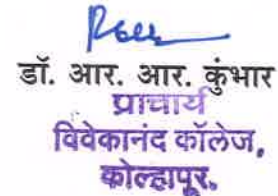 डॉ. आर. आर. कुंभार
प्राचार्य
विवेकानंद कॉलेज,
कोल्हापूर.